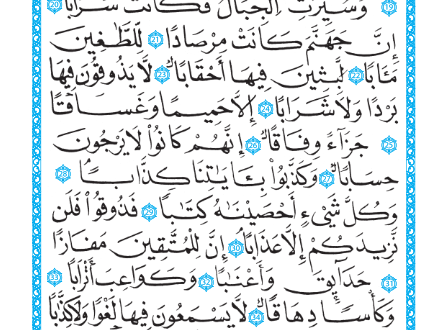 ⑲ وَسُيِّرَتِ ٱلْجِبَالُ فَكَانَتْ سَرَابًا ⑳
إِنَّ جَهَنَّمَ كَانَتْ مِرْصَادًا ㉑ لِّلطَّٰغِينَ
مَـَٔابًا ㉒ لَّٰبِثِينَ فِيهَآ أَحْقَابًا ㉓ لَّا يَذُوقُونَ فِيهَا
بَرْدًا وَلَا شَرَابًا ㉔ إِلَّا حَمِيمًا وَغَسَّاقًا
㉕ جَزَآءً وِفَاقًا ㉖ إِنَّهُمْ كَانُوا۟ لَا يَرْجُونَ
حِسَابًا ㉗ وَكَذَّبُوا۟ بِـَٔايَٰتِنَا كِذَّابًا ㉘
وَكُلَّ شَىْءٍ أَحْصَيْنَٰهُ كِتَٰبًا ㉙ فَذُوقُوا۟ فَلَن
نَّزِيدَكُمْ إِلَّا عَذَابًا ㉚ إِنَّ لِلْمُتَّقِينَ مَفَازًا
㉛ حَدَآئِقَ وَأَعْنَٰبًا ㉜ وَكَوَاعِبَ أَتْرَابًا ㉝
وَكَأْسًا دِهَاقًا ㉞ لَّا يَسْمَعُونَ فِيهَا لَغْوًا وَلَا كِذَّٰبًا